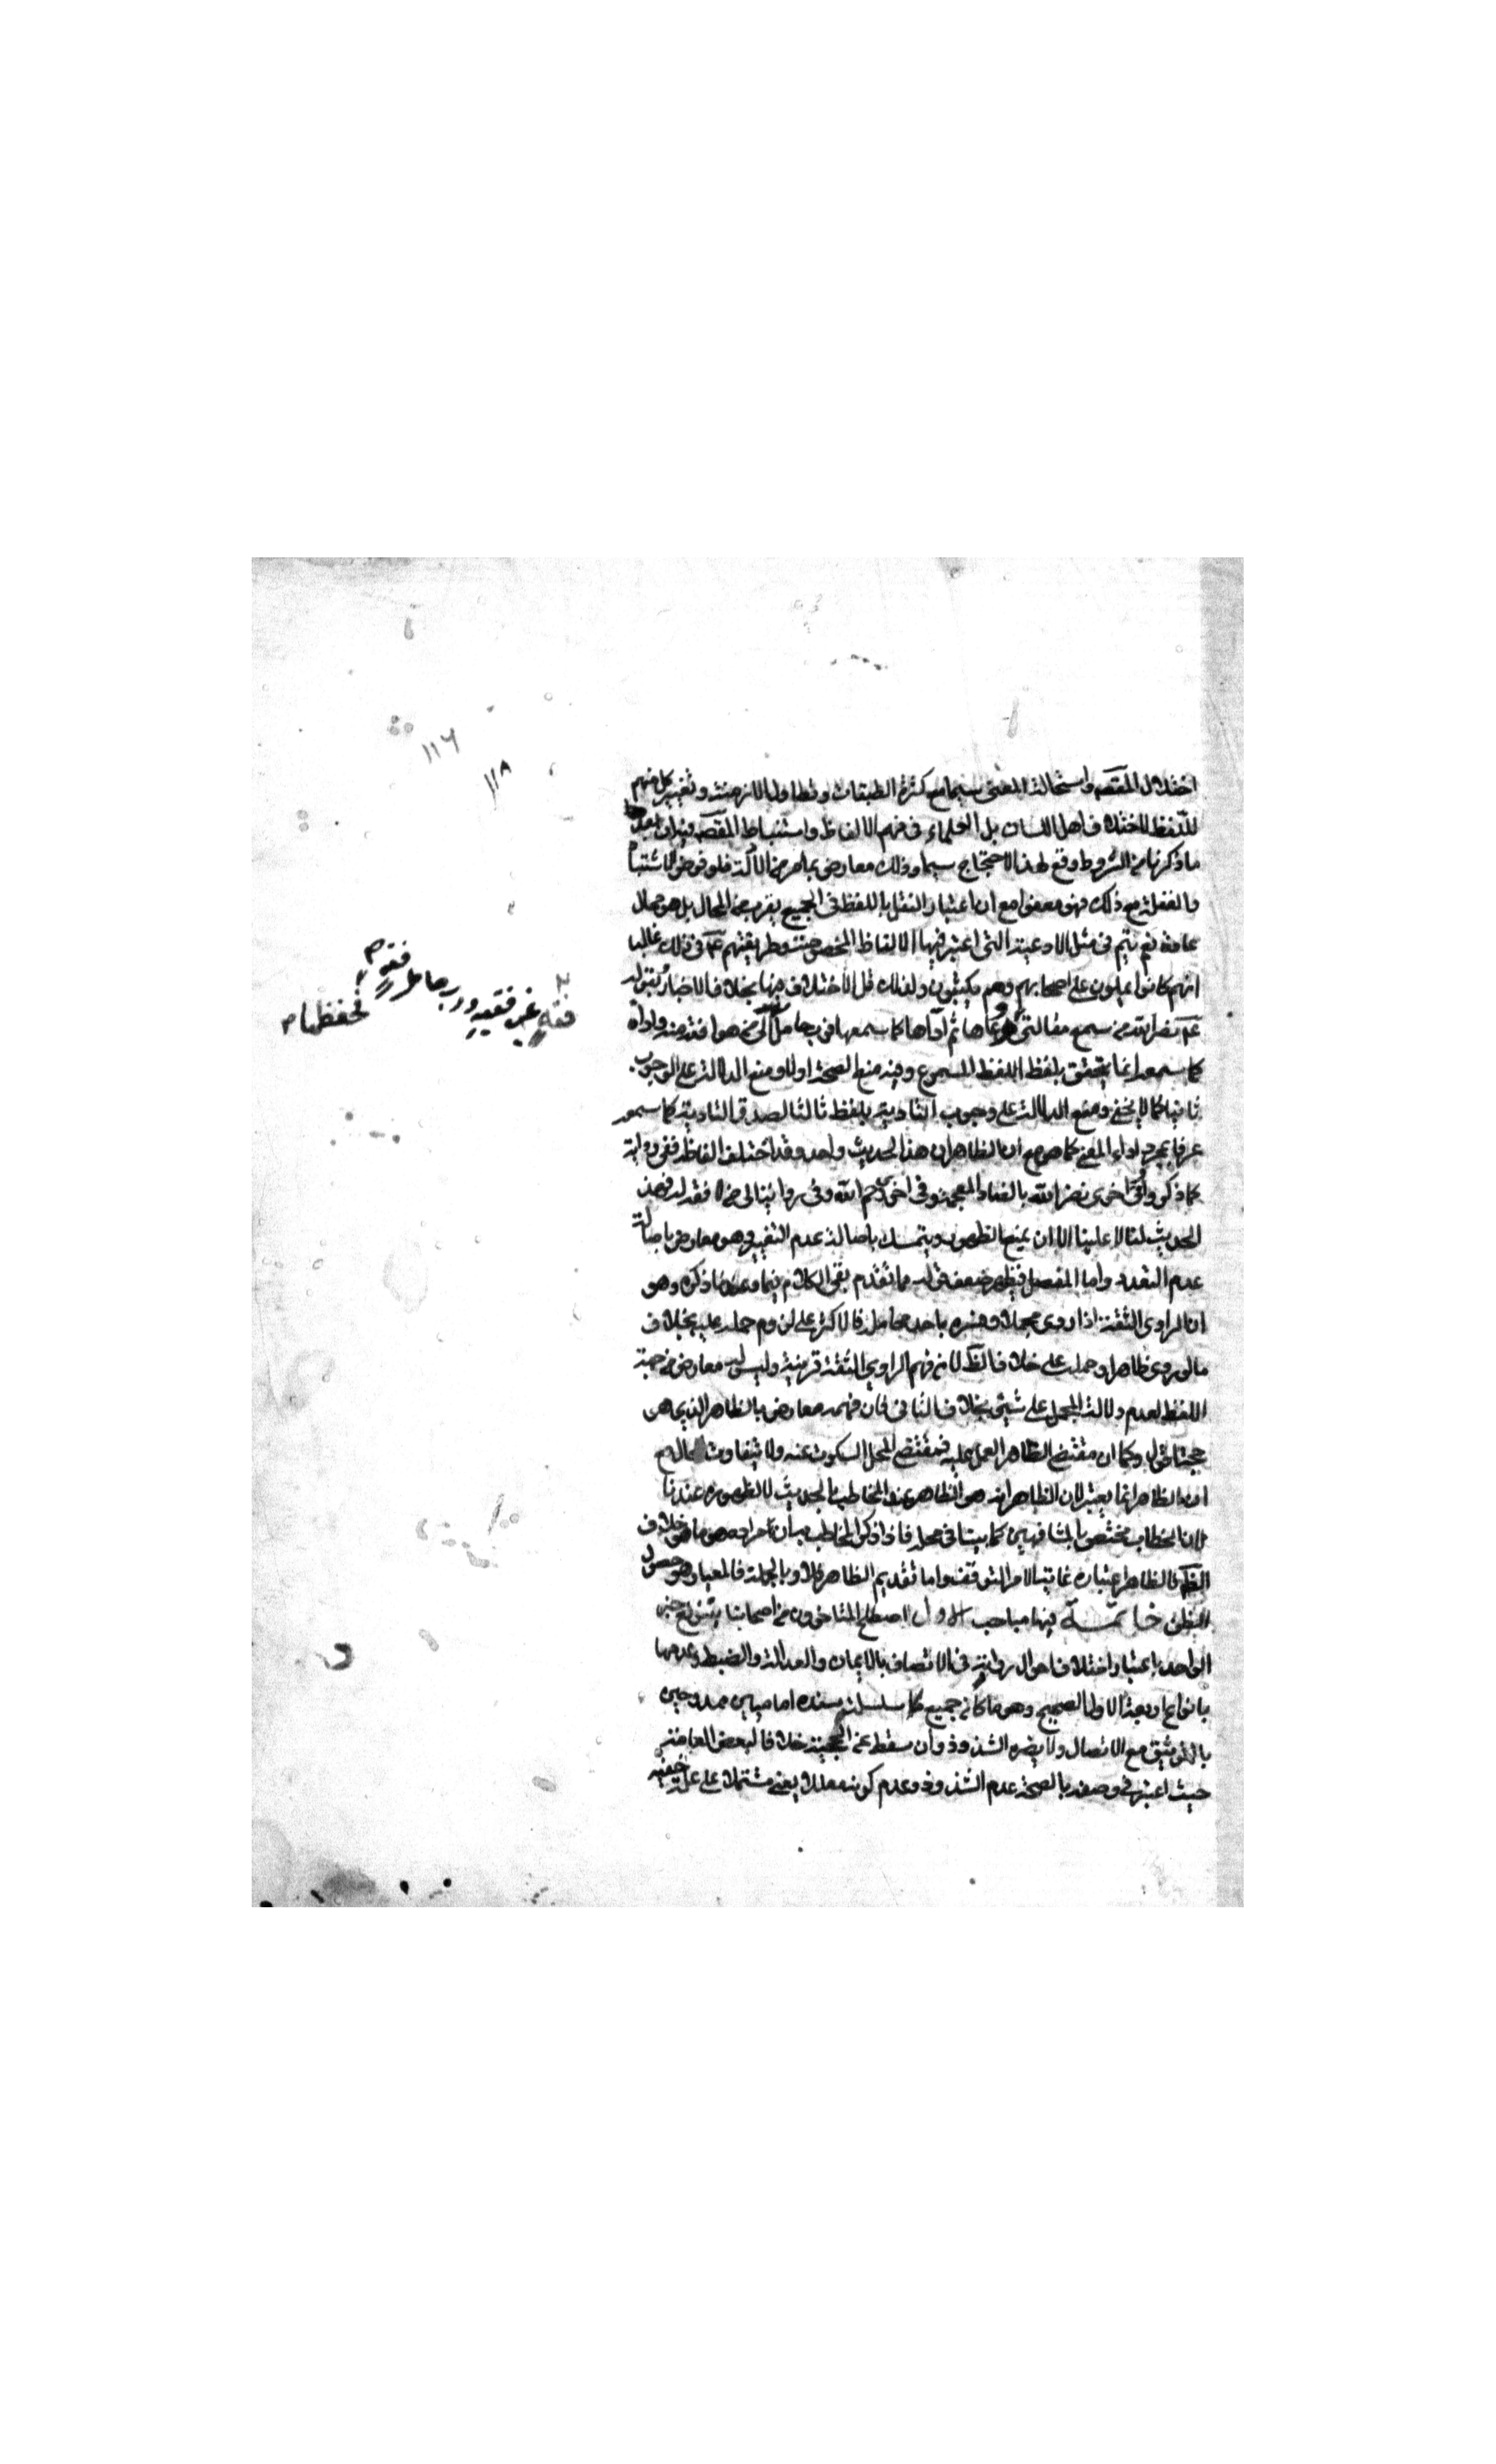 اختلال المقصود واستحالة المعنى سيما مع كثرة الطبقات وتطاول الازمنة وتغيير كل منهم
للفظ لاختلاف اهل اللسان بل العلماء فى فهم الالفاظ واستنباط المقصود وفيه ان بعد
ما ذكرنا من الشروط وقع لهذا الاحتجاج سيما وذلك معارض بما مر من الادلة فلو فرض الاشتباه
والغفلة مع ذلك فهو معفو مع ان اعتبار النقل باللفظ فى الجميع يقرب من المحال بل هو محال
عادة نعم يتم فى مثل الادعية التى اعتبر فيها الالفاظ المخصوصة وطريقتهم عم فى ذلك غالبا
انهم كانوا يملون على اصحابهم وهم يكتبون ولذلك قل الاختلاف فيها بخلاف الاخبار وبقوله
عم نضر الله من سمع مقالتى فوعاها ثم اداها كما سمعها فرب حامل الى من هو افقه منه واداه
كما سمعه انما يتحقق بلفظ اللفظ المسموع وفيه منع الصحة اولا ومنع الدلالة على الوجوب
ثانيا كما لا يخفى ومنع الدلالة على وجوب التادية بلفظ ثالثا لصدق التادية كما سمعه
عرفا بمجرد اداء المعنى كما هو مع ان الظاهر ان هذا الحديث واحد وقد اختلف الفاظه ففى رواية
كما ذكر وفى اخرى نضر الله بالضاد المعجمة وفى اخرى رحم الله وفى رواية الى من لا فقه له فهذا
الحديث لنا لا علينا الا ان يمنع الظهور ويتمسك باصالة عدم التغيير وهو معارض باصالة
عدم التعدد واما المفصل فيظهر ضعف قوله مما تقدم بقى الكلام فيما وعدنا ذكره وهو
ان الراوى الثقة اذا روى مجملا وفسره باحد محامله فالاكثر على لزوم حمله عليه بخلاف
ما لو روى ظاهرا وحمله على خلاف الظ لان فهم الراوى الثقة قرينة وليس له معارض من جهة
اللفظ لعدم دلالة المجمل على شيئ بخلاف الثانى فان فهمه معارض بالظاهر الذى هو
حجة اقول وكما ان مقتضى الظاهر العمل عليه فمقتضى المجمل السكوت عنه ولا يتفاوت الحال مع
ان الظاهر انما يعتبر لان الظاهر انه هو الظاهر عند المخاطب بالحديث لا لظهوره عندنا
لان الخطاب مختص بالمشافهين كما بينا فى محله فاذا ذكر المخاطب بيان ان مراده هو ما هو خلاف
الظ فالظاهر اعتباره غاية الامر التوقف واما تقديم الظاهر فلا وبالجملة فالمعيار هو حصول
الظن خاتمة فيها مباحث الاول اصطلح المتاخرون من اصحابنا بتنويع خبر
الواحد باعتبار اختلاف احوال رواته فى الاتصاف بالايمان والعدالة والضبط وعدمها
بانواع اربعة الاول الصحيح وهو ما كان جميع سلسلة سنده اماميين ممدوحين
بالتوثيق مع الاتصال ولا يضره الشذوذ وان سقط عن الحجية خلافا لبعض العامة
حيث اعتبر فى وصفه بالصحة عدم الشذوذ وعدم كونه معللا يعنى مشتملا على علة خفية
١١٦
١١٨
فقه غير فقيه ورب حامل فقه
فحفظها